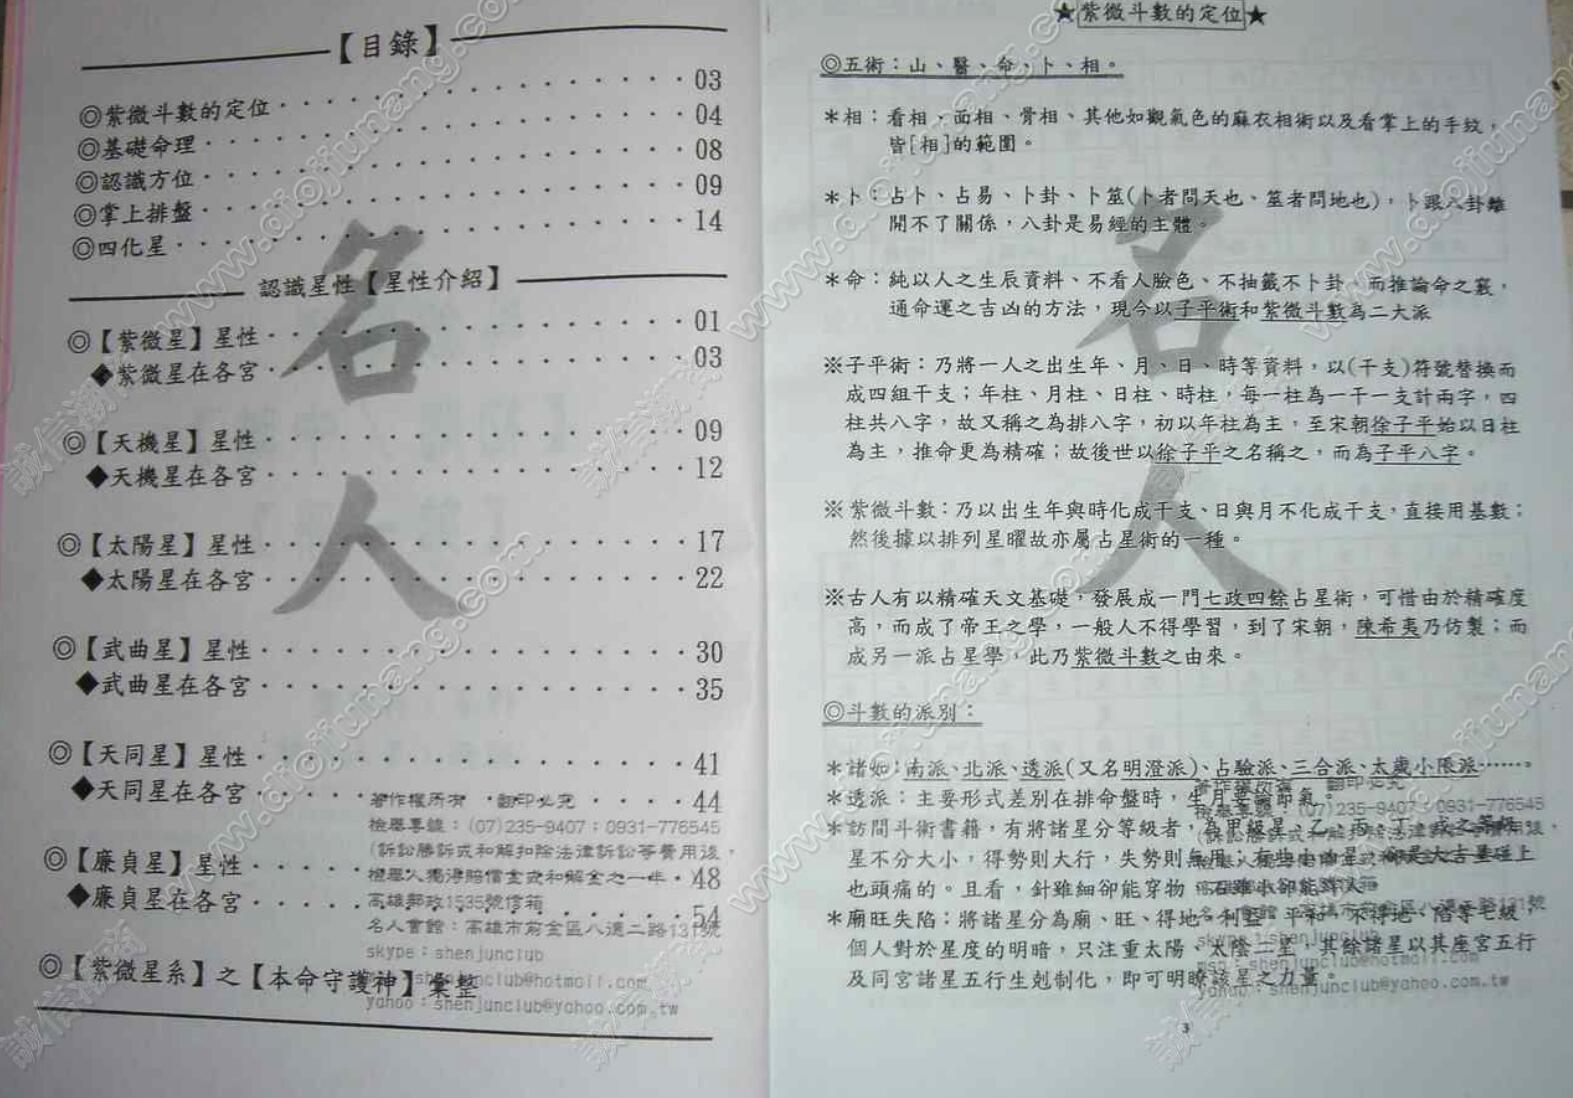 【目錄】
◎紫微斗數的定位 03
◎基礎命理 04
◎認識方位 08
◎掌上排盤 09
◎四化星 14
認識星性【星性介紹】
◎【紫微星】星性 01
◆紫微星在各宮 03
◎【天機星】星性 09
◆天機星在各宮 12
◎【太陽星】星性 17
◆太陽星在各宮 22
◎【武曲星】星性 30
◆武曲星在各宮 35
◎【天同星】星性 41
◆天同星在各宮 44
◎【廉貞星】星性 48
◆廉貞星在各宮 54
◎【紫微星系】之【本命守護神】彙整
著作權所有 翻印必究
檢舉專線：(07)235-9407；0931-776545
(訴訟勝訴或和解扣除法律訴訟等費用後，
檢舉人獨得賠償金或和解金之一半。
高雄郵政1535號信箱
名人會館：高雄市前金區八德二路131號
skype：shenjunclub
shenjunclub@hotmail.com
yahoo：shenjunclub@yahoo.com.tw
名人
★紫微斗數的定位★
◎五術：山、醫、命、卜、相。
＊相：看相、面相、骨相、其他如觀氣色的麻衣相術以及看掌上的手紋，
皆[相]的範圍。
＊卜：占卜、占易、卜卦、卜筮(卜者問天也、筮者問地也)，卜跟八卦離
開不了關係，八卦是易經的主體。
＊命：純以人之生辰資料、不看人臉色、不抽籤不卜卦，而推論命之衰，
通命運之吉凶的方法，現今以子平術和紫微斗數為二大派
※子平術：乃將一人之出生年、月、日、時等資料，以(干支)符號替換而
成四組干支；年柱、月柱、日柱、時柱，每一柱為一干一支計兩字，四
柱共八字，故又稱之為排八字，初以年柱為主，至宋朝徐子平始以日柱
為主，推命更為精確；故後世以徐子平之名稱之，而為子平八字。
※紫微斗數：乃以出生年與時化成干支、日與月不化成干支，直接用基數；
然後據以排列星曜故亦屬占星術的一種。
※古人有以精確天文基礎，發展成一門七政四餘占星術，可惜由於精確度
高，而成了帝王之學，一般人不得學習，到了宋朝，陳希夷乃仿製；而
成另一派占星學，此乃紫微斗數之由來。
◎斗數的派別：
＊諸如：南派、北派、透派(又名明澄派)、占驗派、三合派、太歲小限派……。
＊透派：主要形式差別在排命盤時，生月要論節氣。
＊訪問斗術書籍，有將諸星分等級者，為甲級星、乙、丙、丁、戊之等級。
星不分大小，得勢則大行，失勢則無用；
也頭痛的。且看，針雖細卻能穿物，石雖小卻能
＊廟旺失陷：將諸星分為廟、旺、得地、利益、平和、不得地、陷等七級，
個人對於星度的明暗，只注重太陽、太陰二星，其餘諸星以其座宮五行
及同宮諸星五行生剋制化，即可明瞭該星之力量。
3
名人